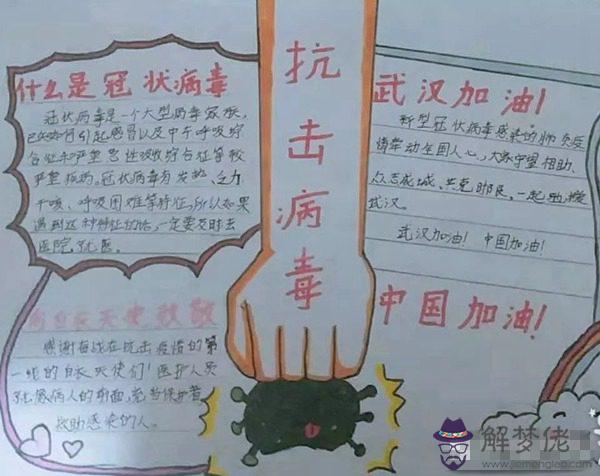 什么是冠状病毒
冠状病毒是一个大型病毒家族,
已知可引起感冒以及中东呼吸综
合征和严重急性呼吸综合征等较
严重疾病。冠状病毒有发热、乏力、
干咳、呼吸困难等特征,所以如果
遇到这种特征的话,一定要及时去
医院就医。
向白衣天使致敬
感谢奋战在抗击疫情的第
一线的白衣天使们!医护人员
病人的前面,
救助感染的人。
抗击病毒
武汉加油!
新型冠状病毒感染的肺炎疫
情牵动全国人心,大家守望相助、
众志成城、共克时艰,一起
武汉。
武汉加油!中国加油!
中国加油!
解梦佬
www.jiemenglao.com